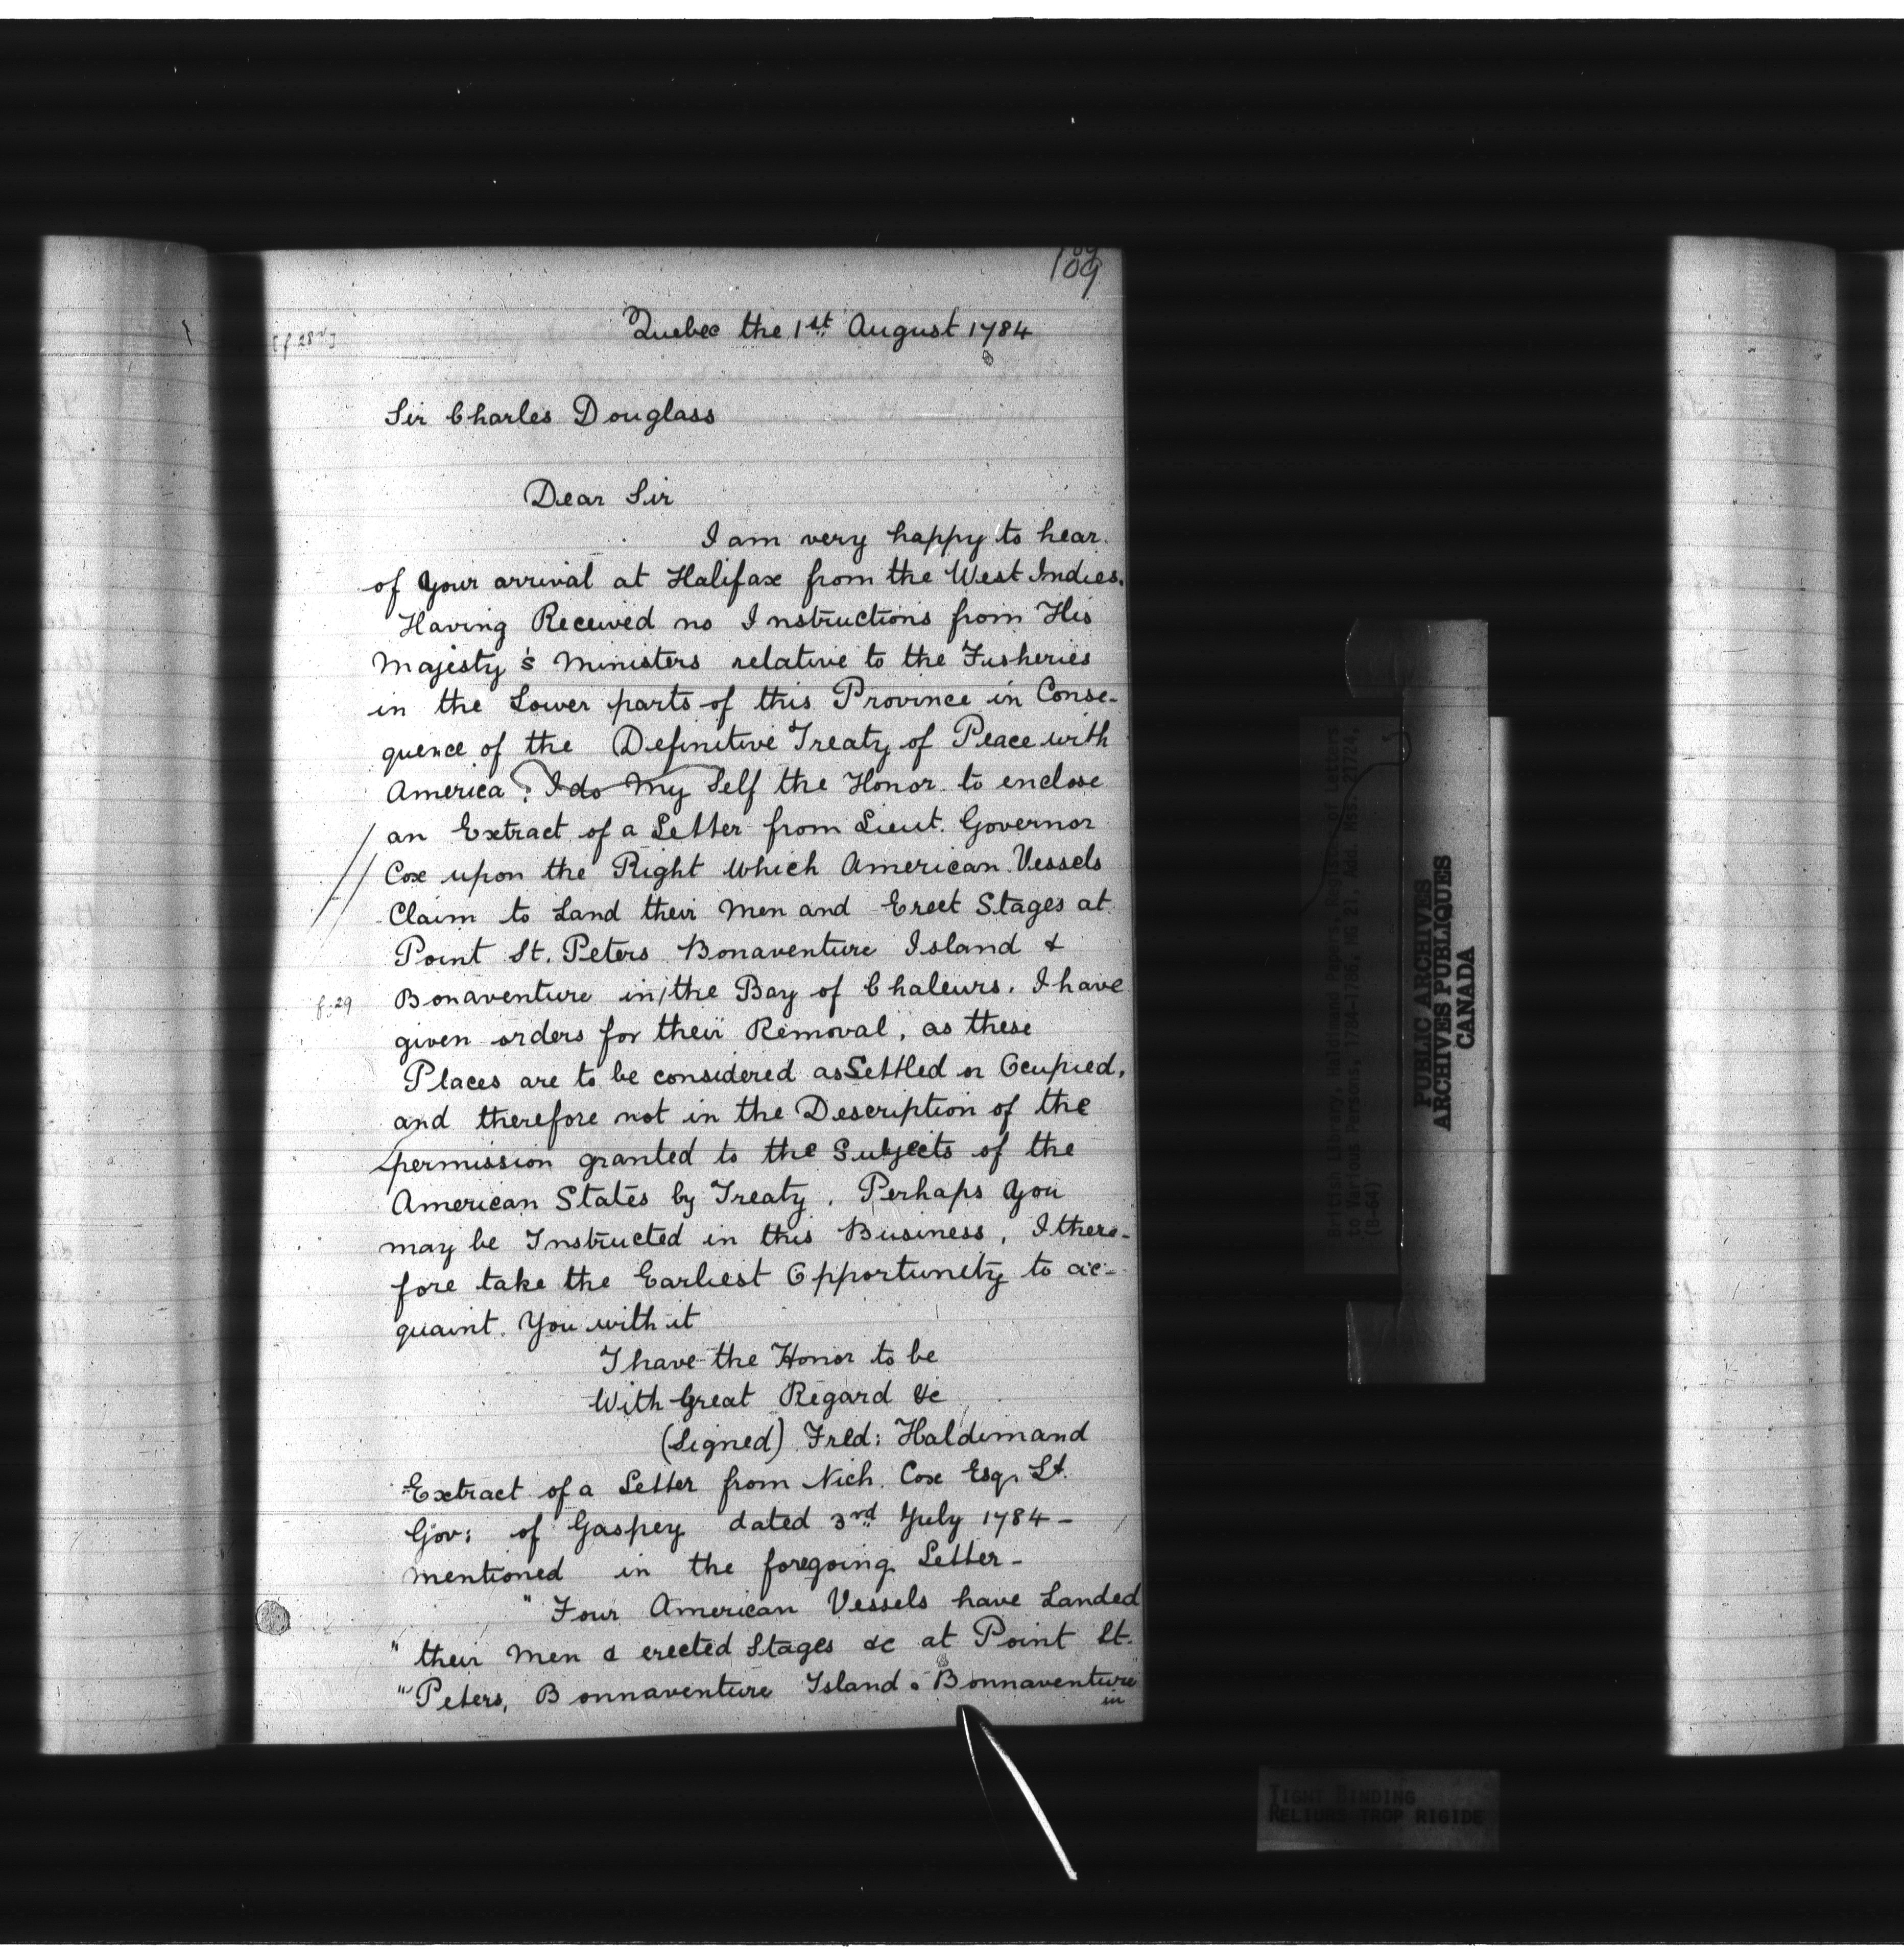 109
[f 28v]
Quebec the 1st August 1784
Sir Charles Douglass
Dear Sir
I am very happy to hear
of Your arrival at Halifax from the West Indies.
Having Received no Instructions from His
Majesty's Ministers relative to the Fisheries
in the Lower parts of this Province in Conse-
quence of the Definitive Treaty of Peace with
America, I do My Self the Honor to enclose
an Extract of a Letter from Lieut. Governor
Cox upon the Right Which American Vessels
Claim to Land their Men and Erect Stages at
Point St. Peters Bonaventure Island &
f. 29 Bonaventure in/the Bay of Chaleurs. I have
given orders for their Removal, as these
Places are to be considered as Settled or Ocupied,
and therefore not in the Description of the
permission granted to the Subjects of the
American States by Treaty. Perhaps You
may be Instructed in this Business, I there-
fore take the Earliest Opportunity to ac-
quaint You with it
I have the Honor to be
With Great Regard &c
(Signed) Fred: Haldimand
Extract of a Letter from Nich. Cox Esqr Lt.
Gov: of Gaspey dated 3rd July 1784 -
mentioned in the foregoing Letter -
" Four American Vessels have Landed
" their Men & erected Stages &c at Point St.
" Peters, Bonnaventure Island & Bonnaventure
in
British Library, Haldimand Papers, Register of Letters
to Various Persons, 1784-1786, MG 21, Add. Mss. 21724,
(B-64)
PUBLIC ARCHIVES
ARCHIVES PUBLIQUES
CANADA
TIGHT BINDING
RELIURE TROP RIGIDE